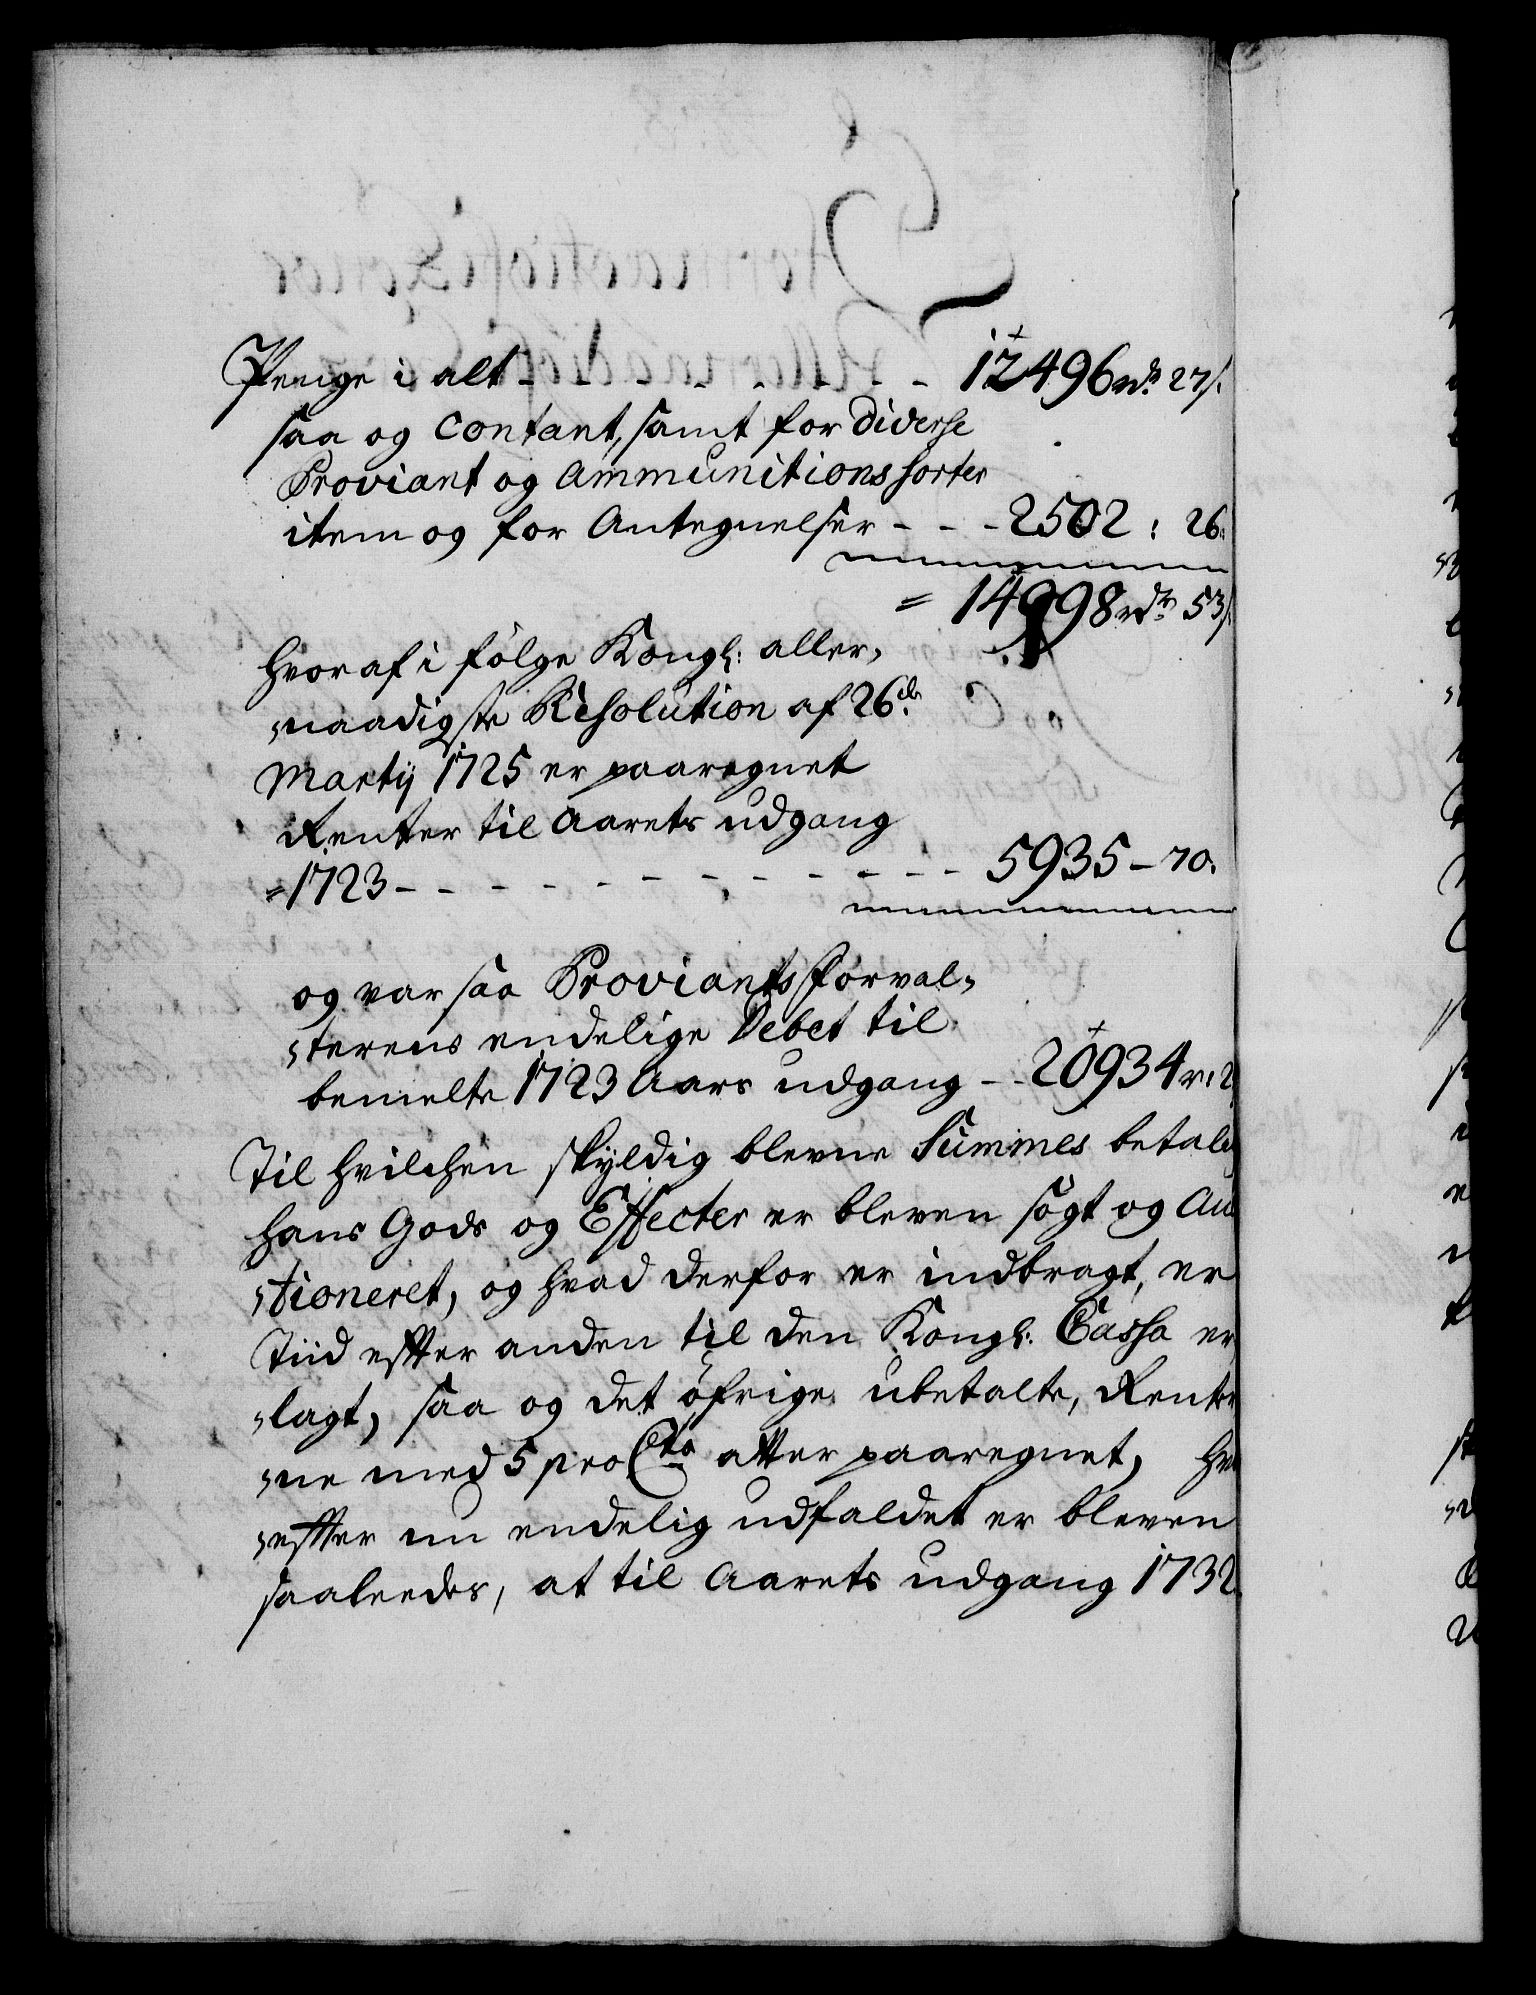 Penge i alt - - - - - - - - 12496 rdr 27 s.
saa og Contant, samt for diverse
Proviant og Ammunitions sorter
item og for Antegnelser - - - 2502 : 26.
= 14998 rdr 53 s.
hvoraf i følge Kongl: aller,
,naadigste Resolution af 26de
Martij 1725 er paaregnet
Renter til Aarets udgang
=1723 - - - - - - - - - - - 5935 - 70.
og var saa Proviantsforval,
,terens endelige Debet til
bemelte 1723 Aars udgang - - 20934 r: 2
Til hvilchen skyldig blevne Summes betal
hans Gods og Effecter er bleven søgt og Au
,tioneret, og hvad derfor er indbragt, er
Tiid effter anden til den Kongl: Cassa er
,lagt, saa og det øfrige ubetalte, Rente
,ne med 5 pro Cto atter paaregnet, hv
,effter nu endelig udfaldet er bleven
saaleedes, at til Aarets udgang 1732